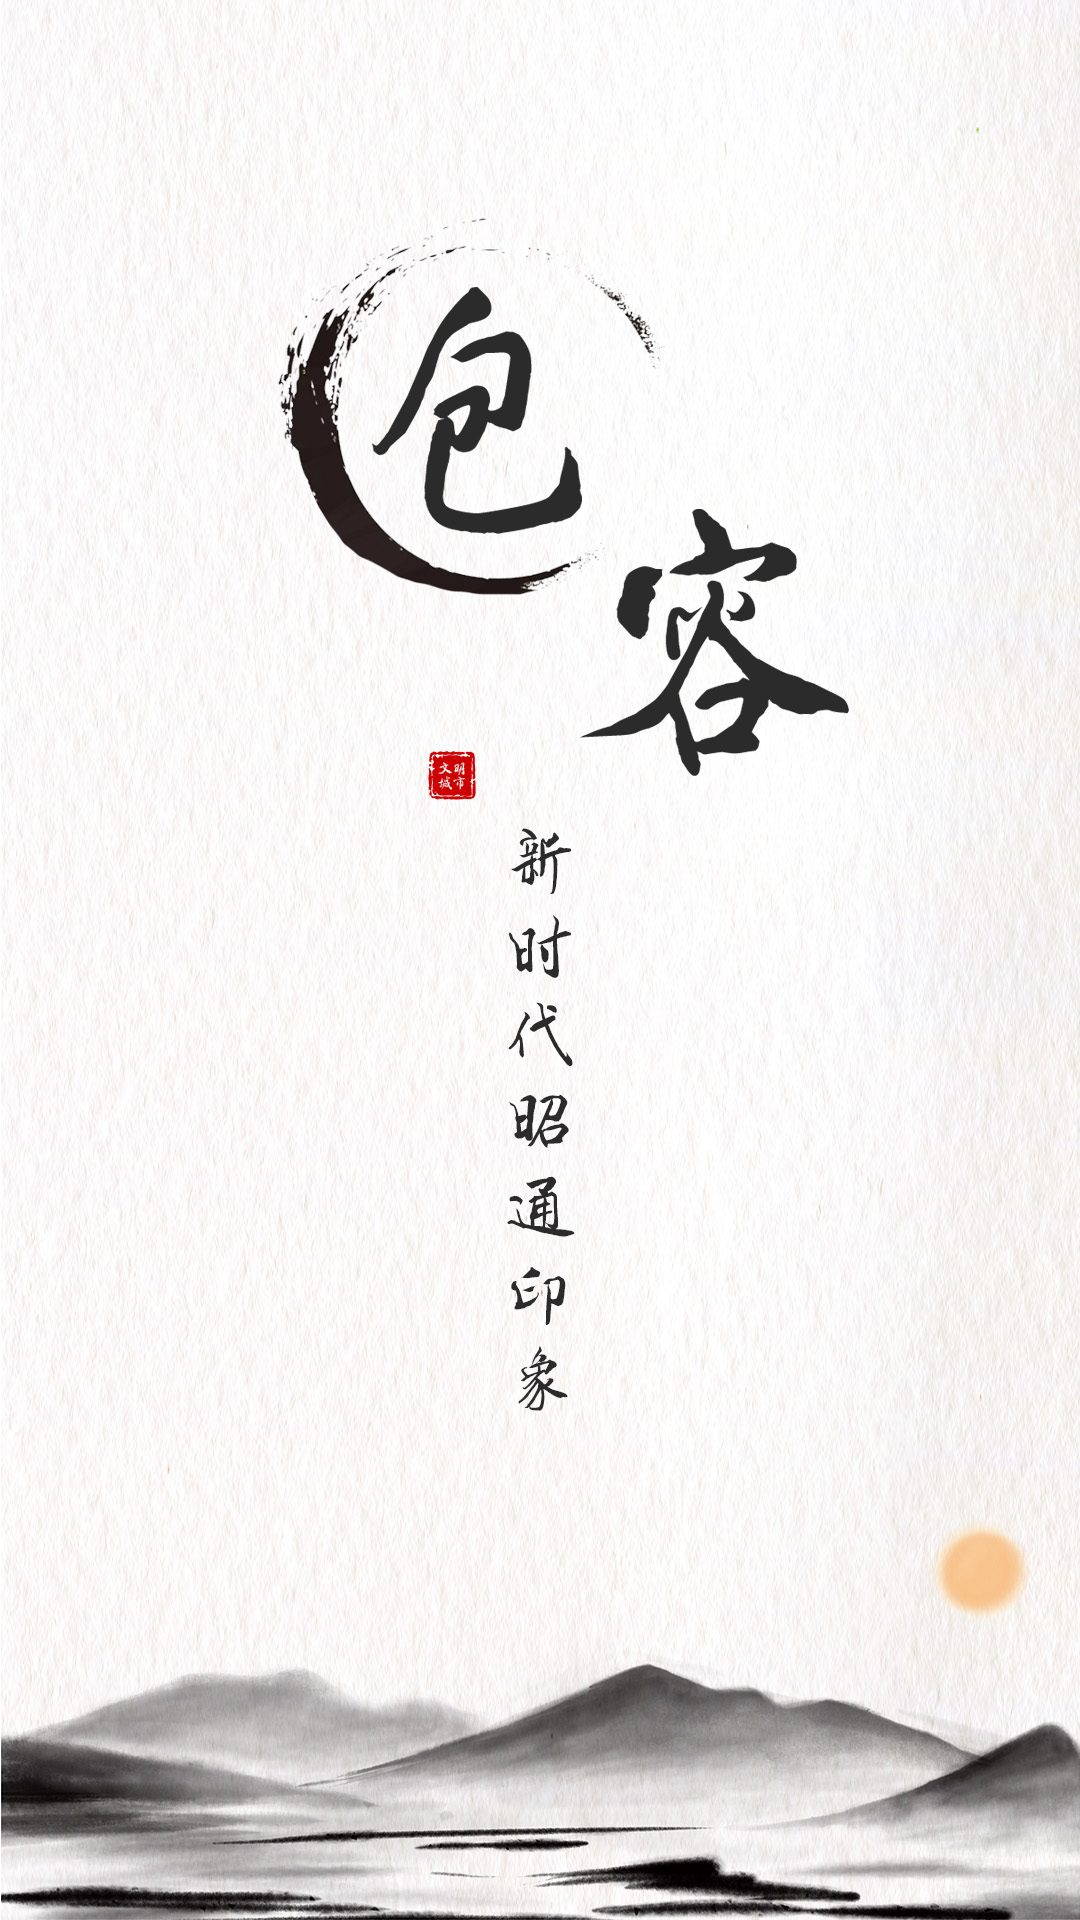 包容
文明
城市
新时代昭通印象